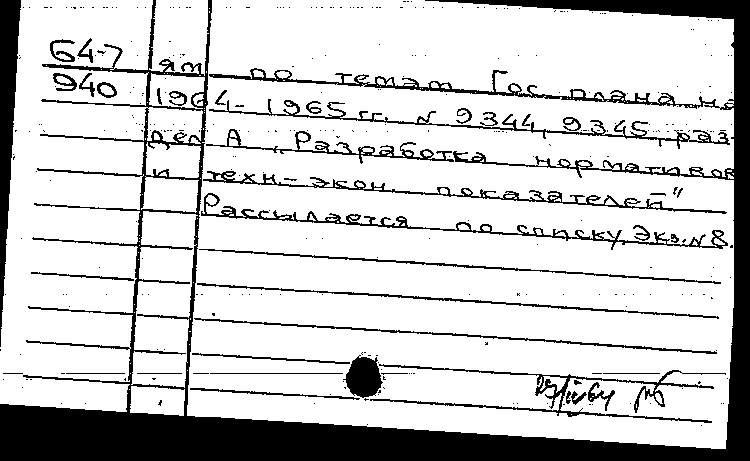 64-7
940
ям по темам Гос. плана на
1964-1965 гг. № 9344, 9345, раз-
дел А „Разработка нормативов
и техн.-экон. показателей"
Рассылается по списку, Экз. № 8.